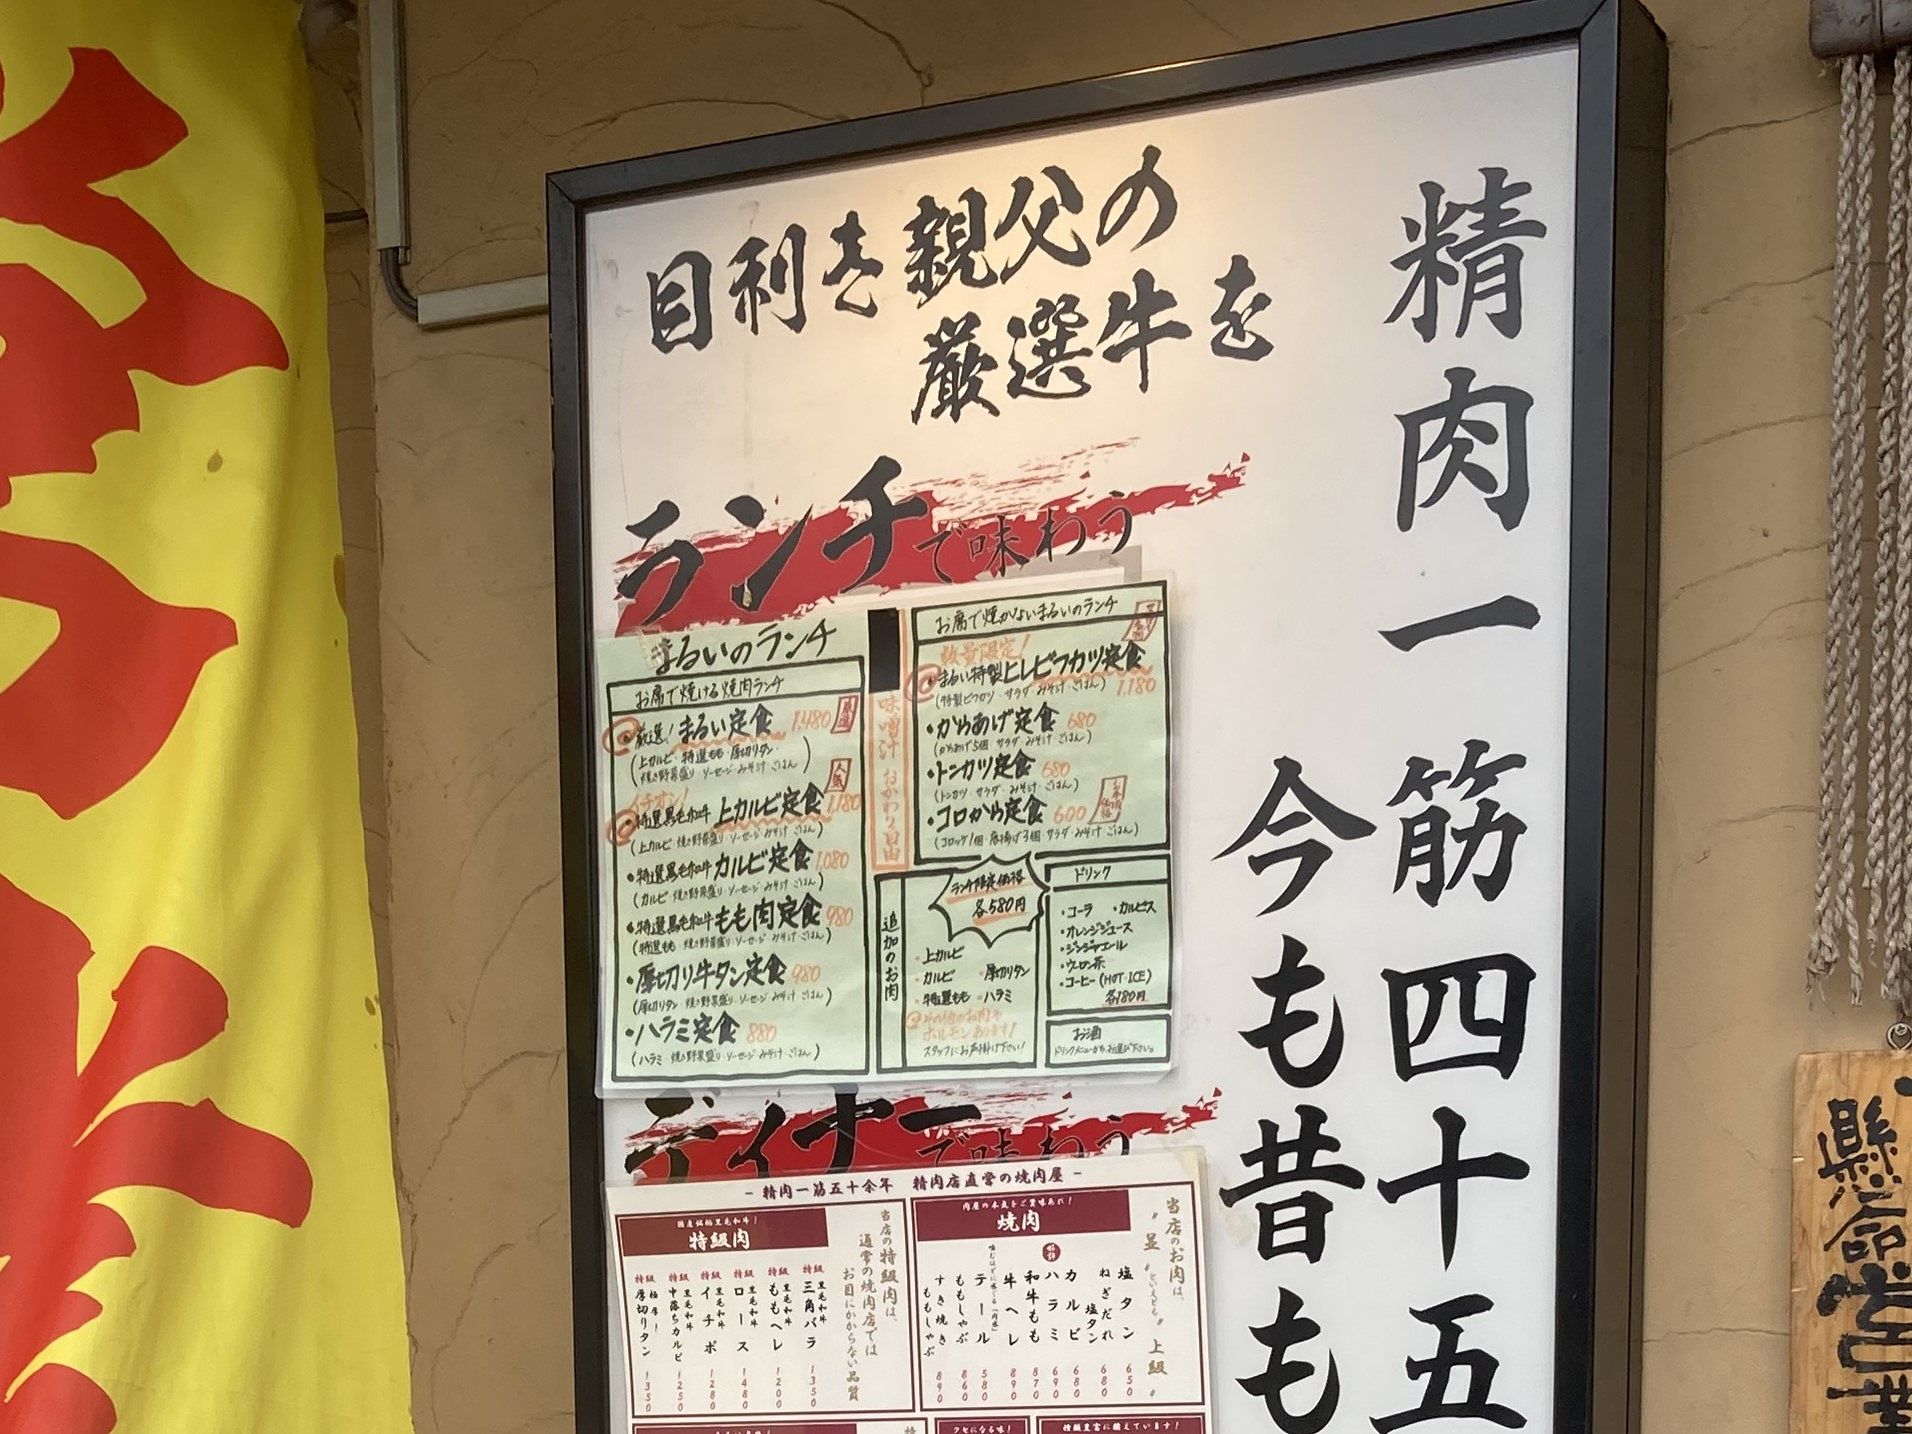 目利き親父の
厳選牛を
精肉一筋四十五
今も昔も
ランチで味わう
まるいのランチ
お席で焼ける焼肉ランチ
厳選！まるい定食 1,480 厳選
(上カルビ・特選もも・厚切りタン・
焼き野菜盛り・ソーセージ・みそ汁・ごはん)
イチオシ！ 人気
・特選黒毛和牛 上カルビ定食 1,180
(上カルビ・焼き野菜盛り・ソーセージ・みそ汁・ごはん)
・特選黒毛和牛 カルビ定食 1,080
(カルビ・焼き野菜盛り・ソーセージ・みそ汁・ごはん)
・特選黒毛和牛 もも肉定食 980
(特選もも・焼き野菜盛り・ソーセージ・みそ汁・ごはん)
・厚切り牛タン定食 980
(厚切りタン・焼き野菜盛り・ソーセージ・みそ汁・ごはん)
・ハラミ定食 880
(ハラミ・焼き野菜盛り・ソーセージ・みそ汁・ごはん)
味噌汁 おかわり自由
お席で焼かないまるいのランチ
数量限定！
・まるい特製ヒレビフカツ定食
(特製ビフカツ・サラダ・みそ汁・ごはん) 1,180
・からあげ定食 680
(からあげ5個・サラダ・みそ汁・ごはん)
・トンカツ定食 680
(トンカツ・サラダ・みそ汁・ごはん)
・コロから定食 600
(コロッケ1個・唐揚げ3個・サラダ・みそ汁・ごはん)
追加のお肉
ランチ限定価格
各580円
・上カルビ
・カルビ ・厚切りタン
・特選もも ・ハラミ
その他のお肉や
ホルモンあります！
スタッフにお声掛け下さい！
ドリンク
・コーラ ・カルピス
・オレンジジュース
・ジンジャエール
・ウーロン茶
・コーヒー(HOT・ICE)
各180円
お酒
ドリンクメニューからお選び下さい。
ディナーで味わう
- 精肉一筋五十余年 精肉店直営の焼肉屋 -
国産銘柄黒毛和牛！
特級肉
当店の特級肉は、
通常の焼肉店では
お目にかからない品質
特級 黒毛和牛 三角バラ 1350
特級 黒毛和牛 ももヘレ 1200
特級 黒毛和牛 ロース 1480
特級 黒毛和牛 イチボ 1280
特級 黒毛和牛 中落ちカルビ 1250
特級 極厚！ 厚切りタン 1350
肉屋の本気をご賞味あれ！
焼肉
当店のお肉は、
"並"といえども"上級"
塩タン 650
ねぎだれ塩タン 680
カルビ 680
ハラミ 690
和牛もも 870
牛ヘレ 890
テール 580
ももしゃぶ 860
すき焼きももしゃぶ 890
クセになる味！
種類豊富に揃えています！
懸命営業